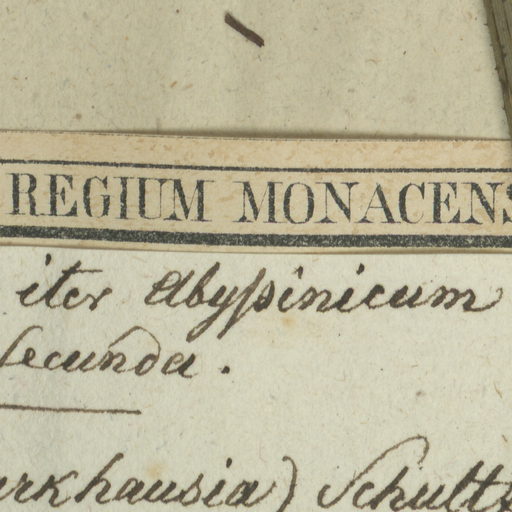 REGIUM MONACENS
iter Abyssinicum
secunda.
arkhausia) Schultz